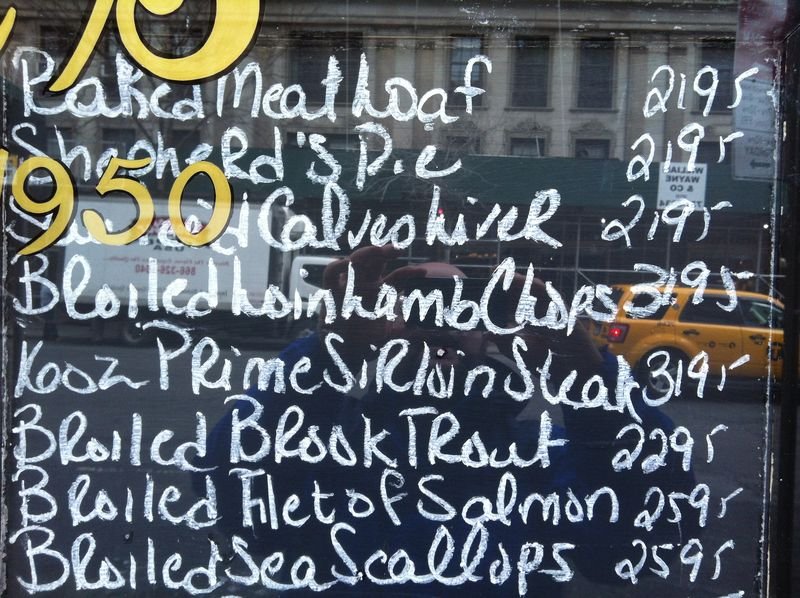 Baked Meat Loaf 2195
Shepherd's Pie 2195
950
Calves Liver 2195
Broiled Loin Lamb Chops 3195
16oz Prime Sirloin Steak 3195
Broiled Brook Trout 2295
Broiled Filet of Salmon 2595
Broiled Sea Scallops 2595
WILLIAM
WAYNE
& CO
866-326-2640